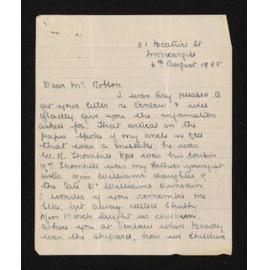 31 St
Invercargill
6th August 1935
Dear Mr Robson
I was very pleased to
get your letter re Venlaw & will
gladly give you the information
asked for. That article in the
paper spoke of my Uncle as Ned
that was a mistake, he was
W. K. Thornhill Ned was his cousin
Mrs Thornhill was my fathers youngest
sister Miss Williams daughter of
the late Dr Williams Dunedin
I wonder if you remember me
but always called
Miss taught us children
Where you at Venlaw when Brady
was the shepard, how we children